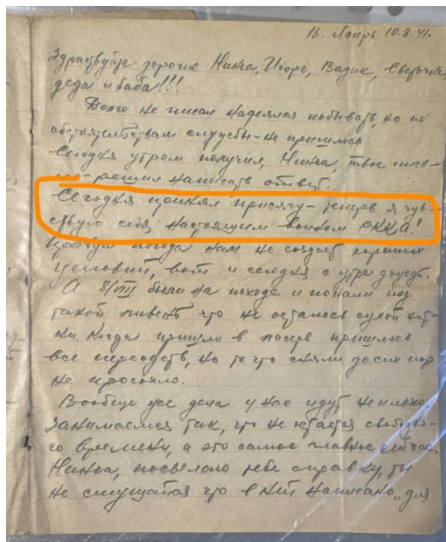 В. Лагерь 10.8.41.
Здравствуйте дорогие Нинча, Игорь, Вадик, Светочка
деда и баба!!!
Долго не писал надеялся побывать, но по
обстоятельствам службы не пришлось
Сегодня утром получил, Нинча твое пись-
мо решил написать ответ.
Сегодня принял присягу - теперь я чув-
ствую себя настоящим воином РККА!
погода нам не создает хороших
условий, вот и сегодня с утра дождь.
А 8/VIII были на походе и попали под
такой ливень что не осталось сухой нит-
ки. Когда пришли в лагерь пришлось
все переодеть, но то что сняли до сих пор
не просохло.
Вообще же дела у нас идут неплохо.
Занимаемся так, что не хватает свободно-
го времени, а это самое главное сейчас.
Нинча, посылаю тебе справку, ты
не смущайся что в ней написано „для